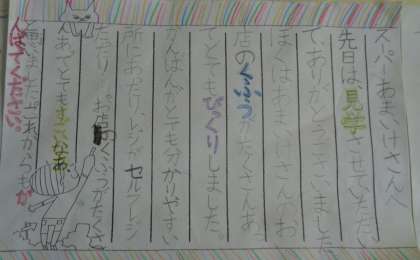 スーパーあまいけさんへ
先日は見学させていただい
て、ありがとうございました
ぼくはあまいけさんのお
店のくふうがたくさんあっ
てとてもびっくりしました。
かんばんがとても分かりやすい
所にあったり、レジがセルフレジ
だったり、お店のくふうがたくさ
あってとてもすごいなあ
と思いました。これからもが
ください。